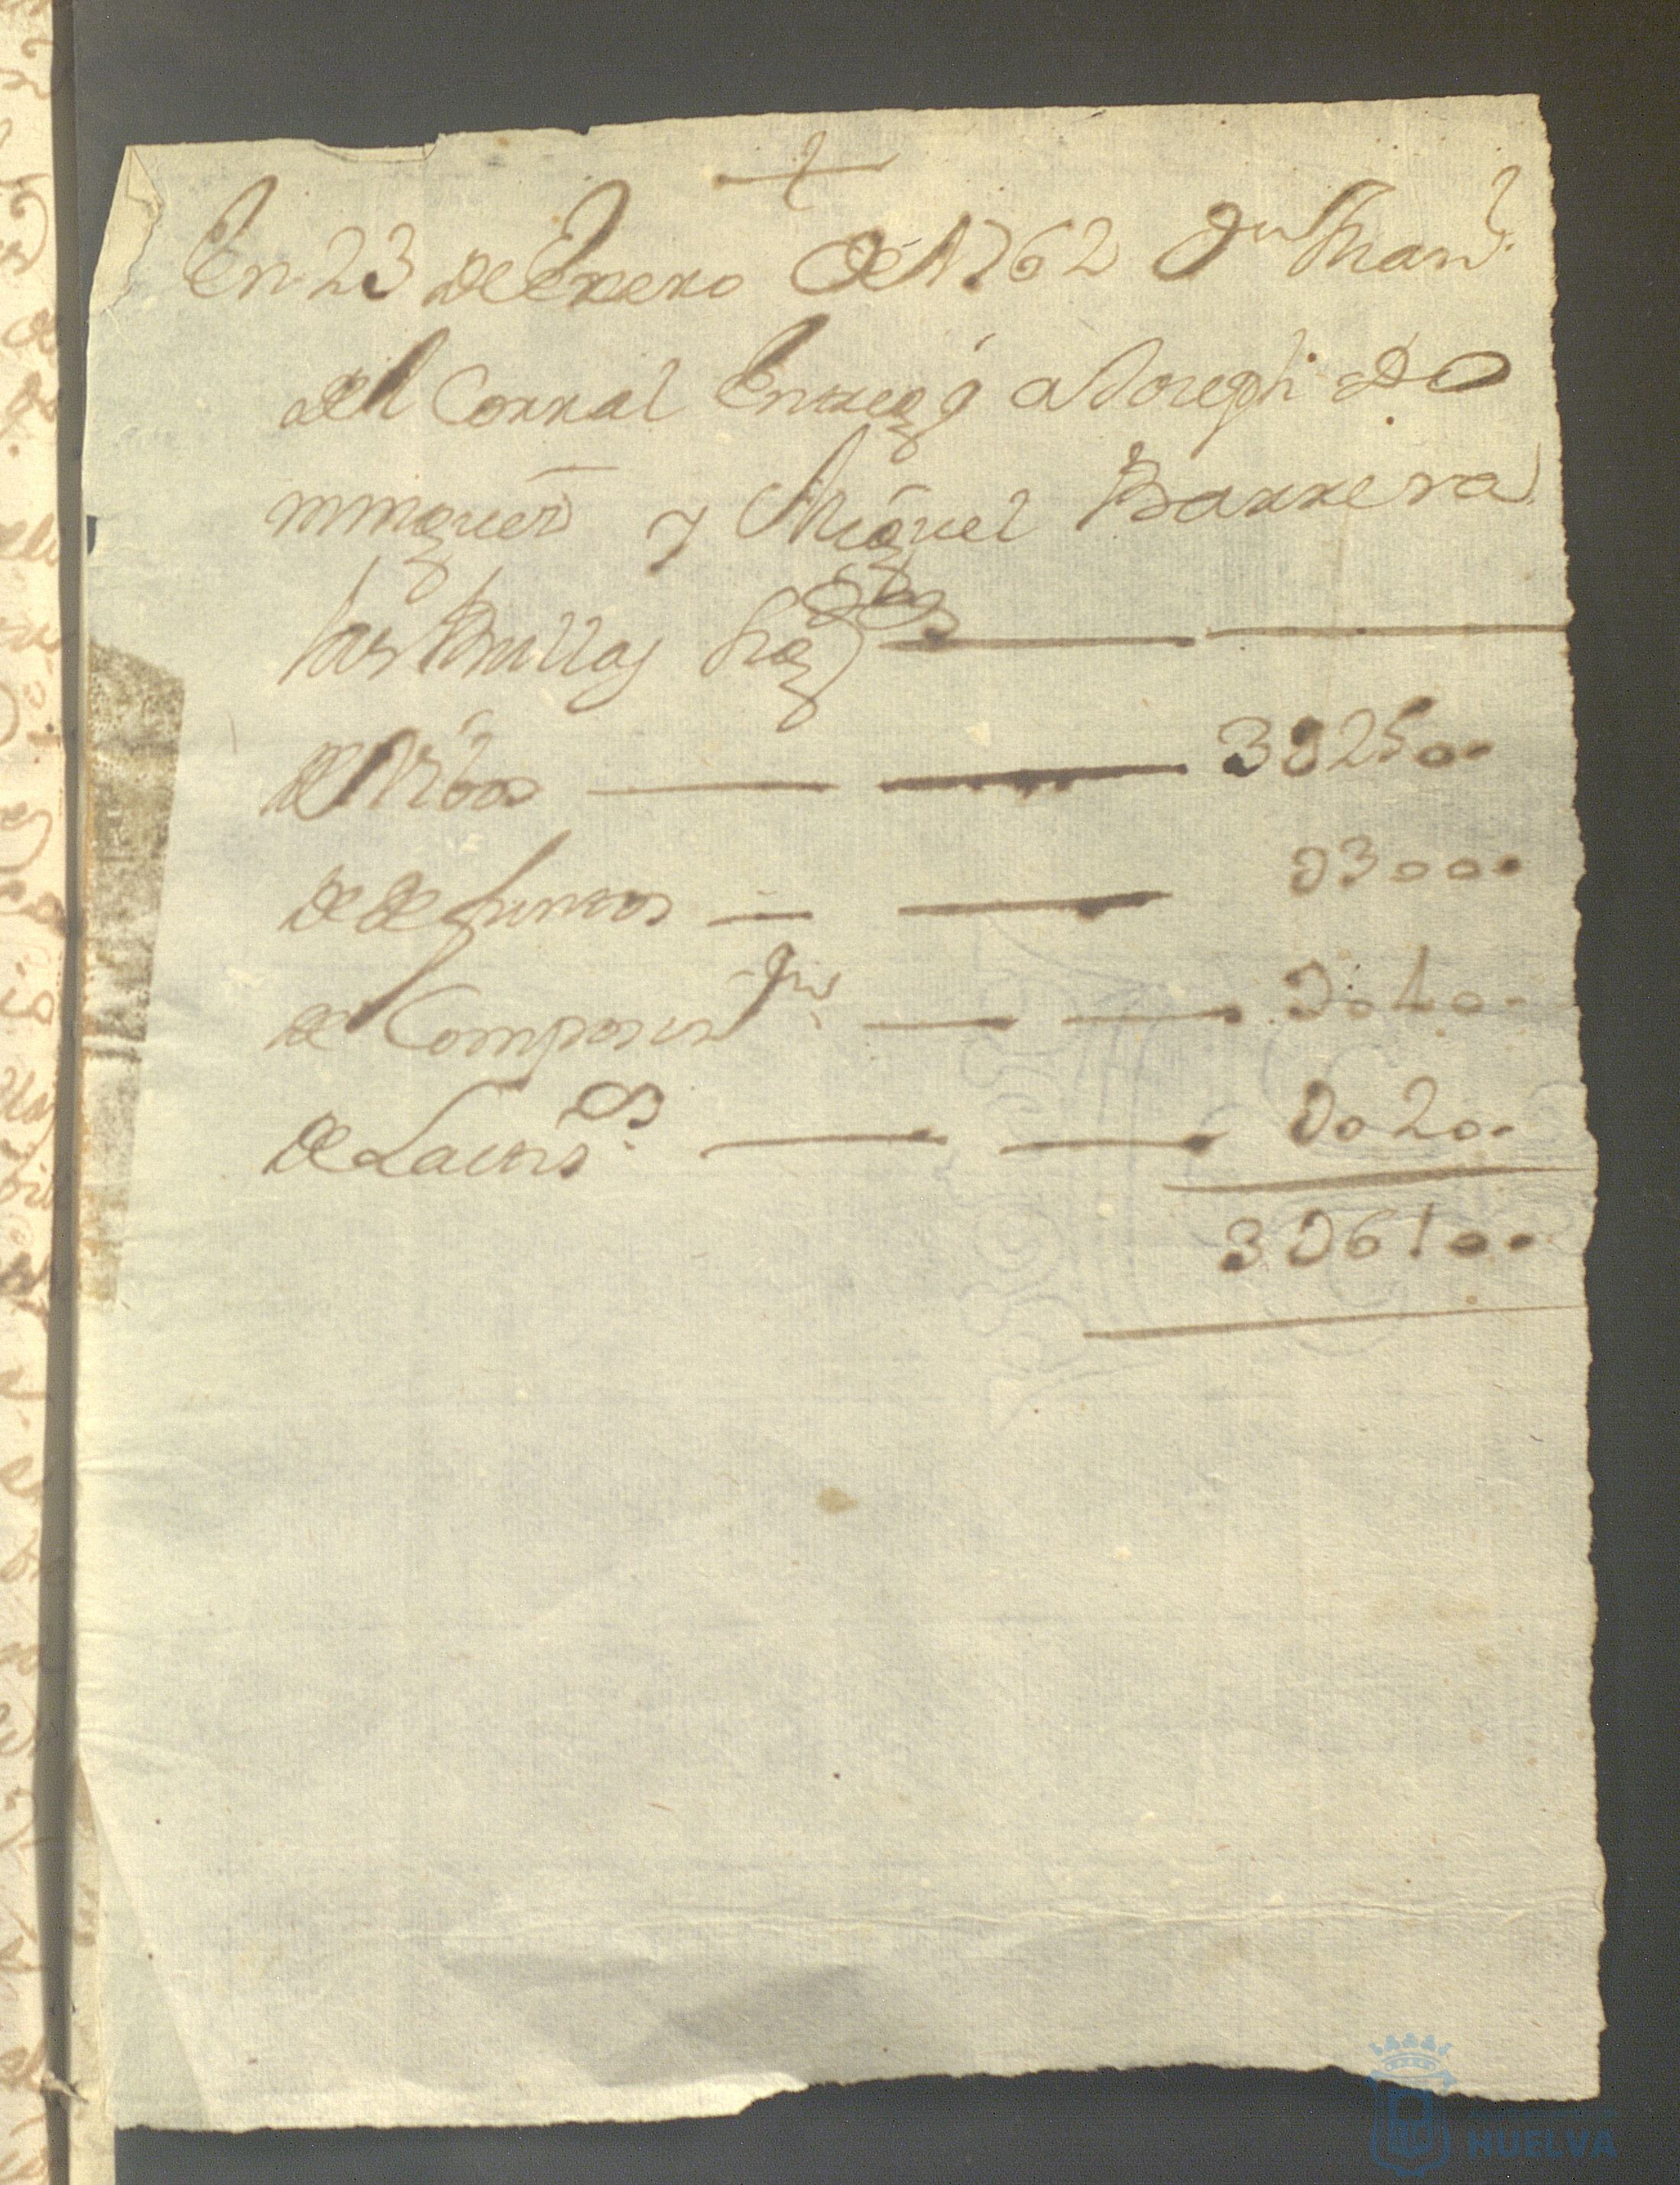 +
En 23 de Enero de 1762 Dn Franco
del Corral Entregó a Joseph Do
minguez y Miguel Barrera
las Bullas sigtes
de Vibos 3 D 25 00
de defuntos D 3 0 0 0
de Composisn D 0 1 0 0
de Lactisos D 0 2 0 0
3 D 6 1 0 0
HUELVA